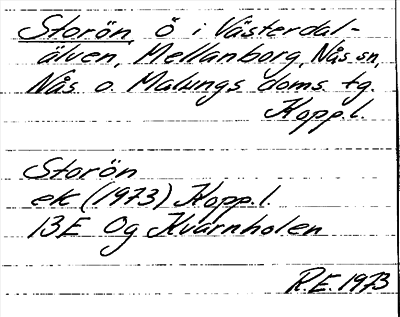 Storön, ö i Västerdal-
älven, Mellanborg, Nås sn,
Nås o. Malungs doms. tg.
Kopp.l.
Storön
ek (1973) Kopp.l.
13E 0g Kvarnholen
R.E. 1973